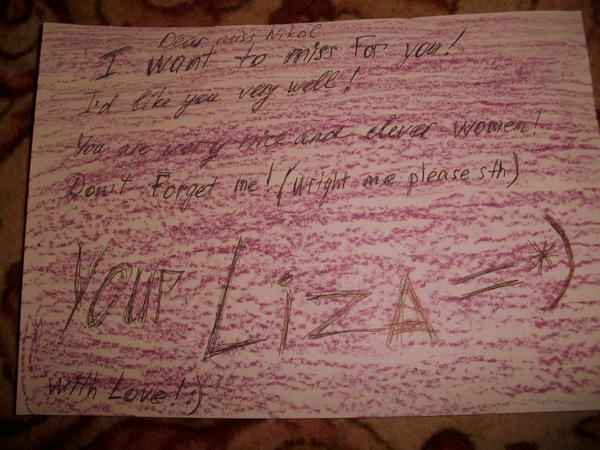 Dear miss Nikol
I want to miss For you!
I'd like you very well!
You are very nice and clever women!
Don't Forget me! (wright me please sth)
Your Liza =*)
with Love! :)